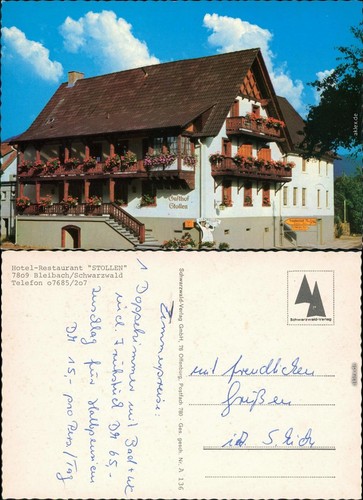 Gasthof
Stollen
Hotel-Restaurant "STOLLEN"
7809 Bleibach/Schwarzwald
Telefon 07685/207
Zimmerpreise:
1 Doppelzimmer mit Bad + WC
incl. Frühstück DM 65,-
Zuschlag für Halbpension
DM 15,- pro Pers/Tag
Schwarzwald-Verlag GmbH, 76 Offenburg, Postfach 780 - Ges. gesch. Nr. A 136
Schwarzwald-Verlag
mit freundlichen
Grüßen